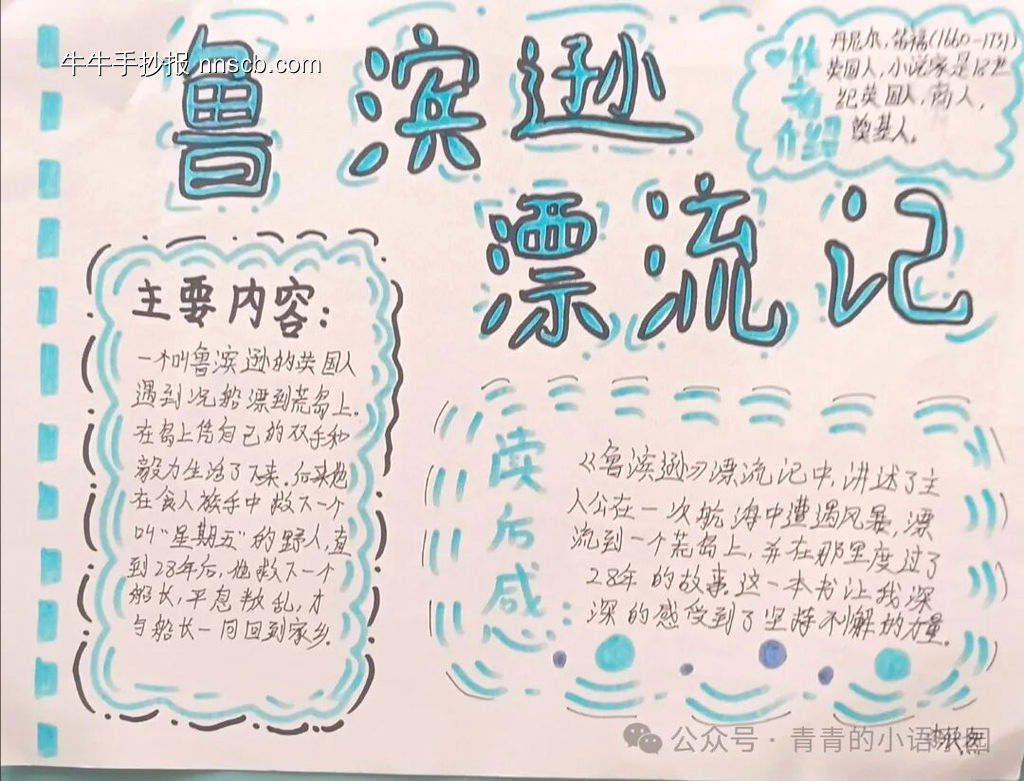 牛牛手抄报 nnscb.com
鲁滨逊
漂流记
作者介绍
丹尼尔.笛福(1660-1731)
英国人,小说家是18世
纪英国人,商人,
奠基人。
主要内容:
一个叫鲁滨逊的英国人
遇到沉船漂到荒岛上.
在岛上凭自己的双手和
毅力生活了下来.后来他
在食人族手中救下一个
叫“星期五”的野人,直
到28年后,他救下一个
船长,平息叛乱,才
与船长一同回到家乡.
读后感:
《鲁滨逊》漂流记中,讲述了主
人公在一次航海中遭遇风暴,漂
流到一个荒岛上,并在那里度过了
28年的故事.这一本书让我深
深的感受到了坚持不懈的力量.
公众号·青青的小语